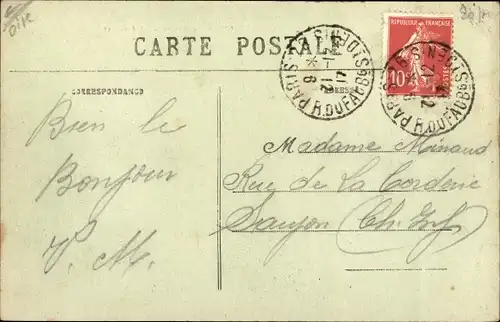 Oise
CARTE POSTALE
RÉPUBLIQUE FRANÇAISE
10
POSTES
PARIS
R. DU FAUBG ST DENIS
CORRESPONDANCE
Bien le
Bonjour
V. M.
Madame Minaud
Rue de La Corderie
Saujon (Ch. Inf)